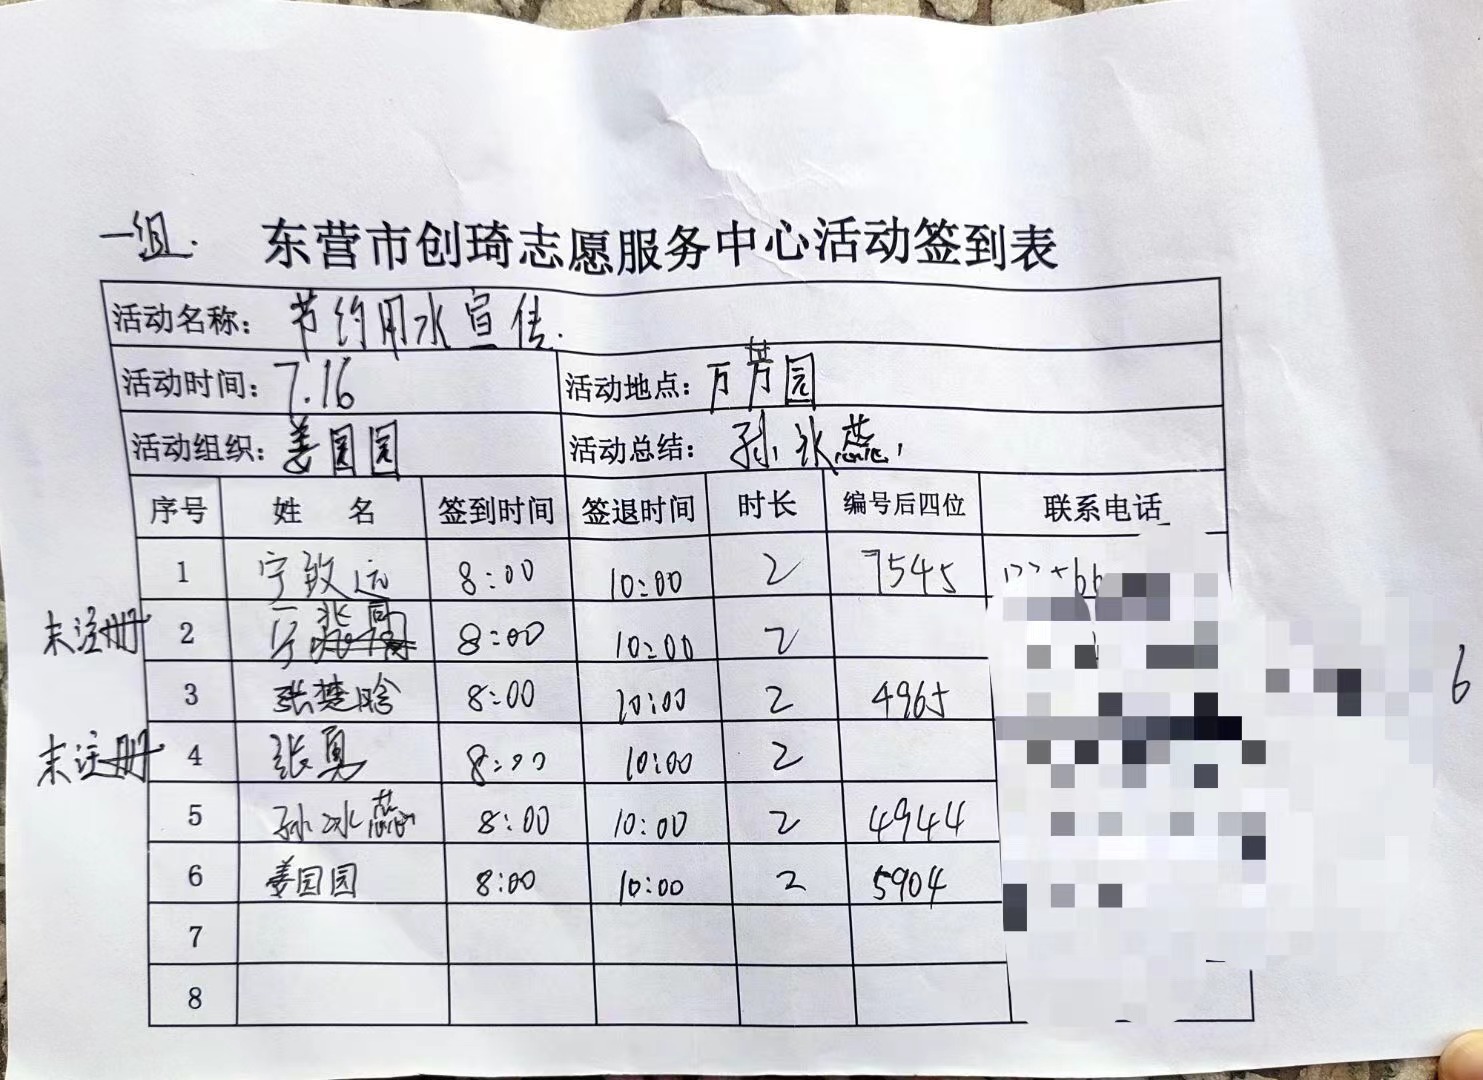 一组. 东营市创琦志愿服务中心活动签到表
活动名称: 节约用水宣传.
活动时间: 7.16 活动地点: 万芳园
活动组织: 姜园园 活动总结: 孙冰蕊
序号 姓 名 签到时间 签退时间 时长 编号后四位 联系电话
1 宁致远 8:00 10:00 2 7545
未注册 2 8:00 10:00 2
3 张楚晗 8:00 10:00 2 4965
未注册 4 张勇 8:00 10:00 2
5 孙冰蕊 8:00 10:00 2 4944
6 姜园园 8:00 10:00 2 5904
7
8
6